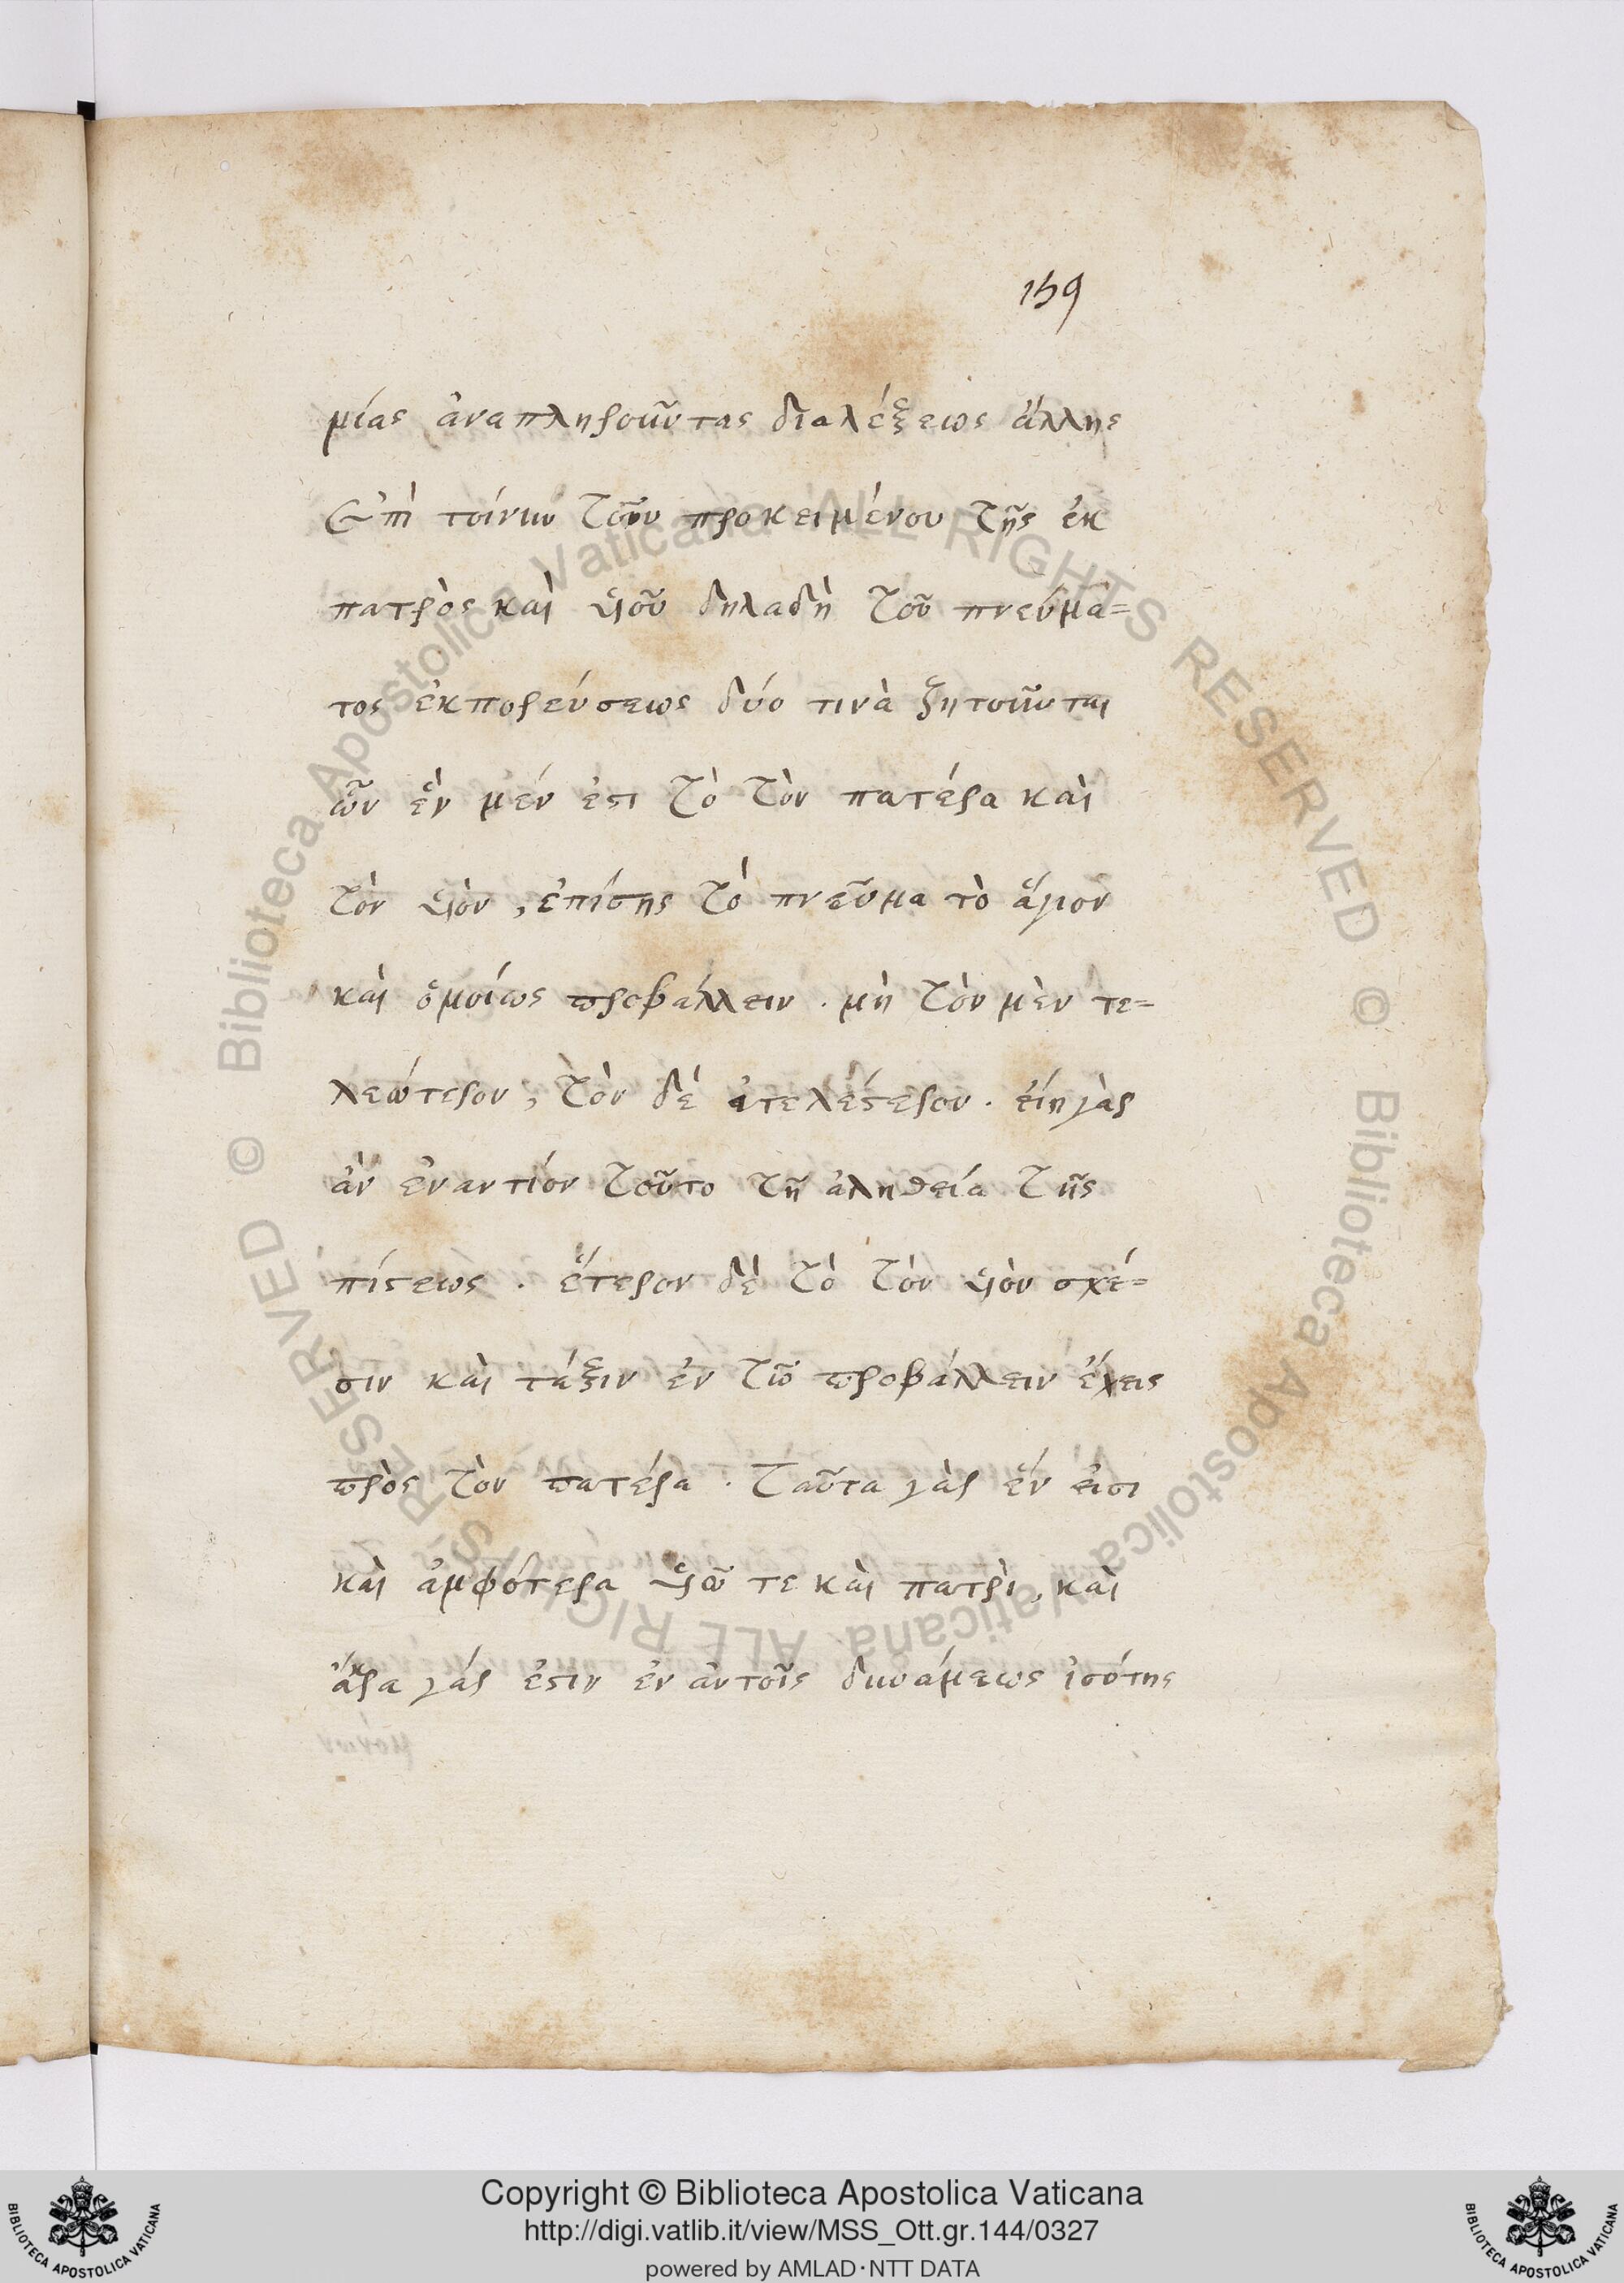 159
μίας ἀναπληροῦντας διαλέξεως ἄλλης
Ἐπὶ τοίνυν τοῦ προκειμένου τῆς ἐκ
πατρὸς καὶ ὑιοῦ δηλαδὴ τοῦ πνεύμα=
τος ἐκπορεύσεως δύο τινὰ ζητοῦνται
ὧν ἓν μέν ἐστι τὸ τὸν πατέρα καὶ
τὸν ὑιὸν, ἐπίσης τὸ πνεῦμα τὸ ἅγιον
καὶ ὁμοίως προβάλλειν. μὴ τὸν μὲν τε=
λεώτερον, τὸν δέ ἀτελέστερον. εἴη γὰρ
ἂν ἐναντίον τοῦτο τῇ ἀληθεία τῆς
πίστεως. ἕτερον δὲ τὸ τὸν ὑιὸν σχέ=
σιν καὶ τάξιν ἐν τῶ προβάλλειν ἔχειν
πρὸς τὸν πατέρα. ταῦτα γὰρ ἕν εἰσι
καὶ ἀμφότερα ὑιῶ τε καὶ πατρὶ, καὶ
ἄρα γάρ ἐστιν ἐν ἀυτοῖς δυνάμεως ἰσότης
Copyright © Biblioteca Apostolica Vaticana
http://digi.vatlib.it/view/MSS_Ott.gr.144/0327
powered by AMLAD·NTT DATA
BIBLIOTECA APOSTOLICA VATICANA
BIBLIOTECA APOSTOLICA VATICANA
© Biblioteca Apostolica Vaticana ALL RIGHTS RESERVED
© Biblioteca Apostolica Vaticana ALL RIGHTS RESERVED